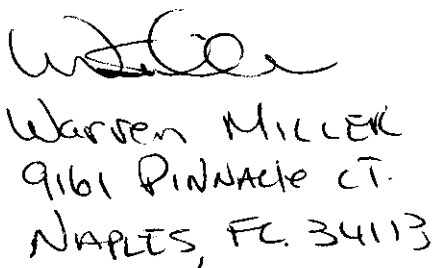 Warren MILLER
9161 PINNACLE CT.
NAPLES, FL. 34113